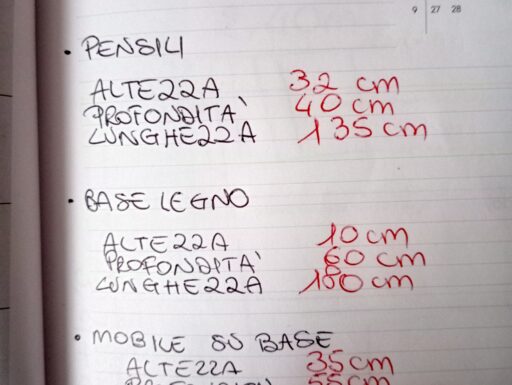 9 27 28
• PENSILI
ALTEZZA 32 cm
PROFONDITÀ 40 cm
LUNGHEZZA 135 cm
• BASE LEGNO
ALTEZZA 10 cm
PROFONDITÀ 60 cm
LUNGHEZZA 180 cm
• MOBILE SU BASE
ALTEZZA 35 cm
PROFONDITÀ 55 cm